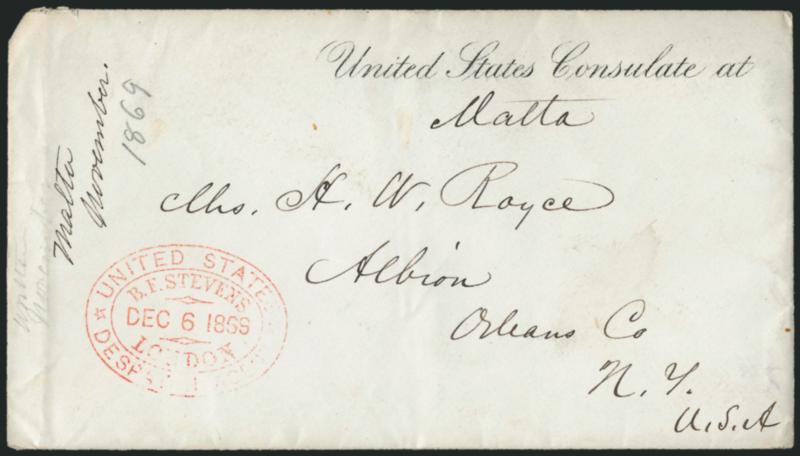 United States Consulate at
Malta
Mrs. H. W. Royce
Albion
Orleans Co
N. Y.
U.S.A
Malta
November.
1869
UNITED STATES
B.F. STEVENS
DEC 6 1869
LONDON